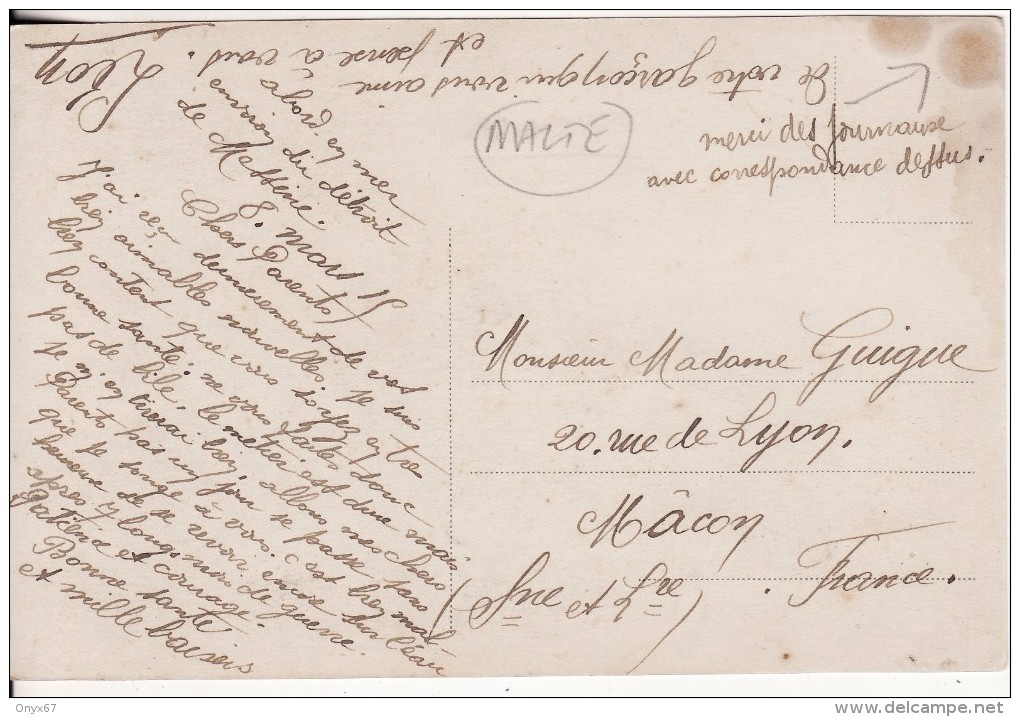 à bord. en mer
environ du détroit
de Messine.
8. mars 15
Chers Parents
J'ai reçu dernièrement de vos
bien aimables nouvelles. Je suis
bien content que vous soyez en ta
bonne santé, ne vous faites donc
pas de bile, le métier est dur mais
je m'en tirerai bien, allons mes chers
Parents pas un jour se passe sans
que je songe à vous. C'est bien mal
heureux de se revoir encore sur l'eau
après 7 longs mois de guerre.
Patience et courage.
Bonne santé
et mille baisers
de votre garçon qui vous aime
et pense à vous.
Léon
MALTE
merci des journaux
avec correspondance dessus.
Monsieur Madame Guigue
20. rue de Lyon.
Mâcon
(Sne et Lre) . France.
Onyx67
www.delcampe.net